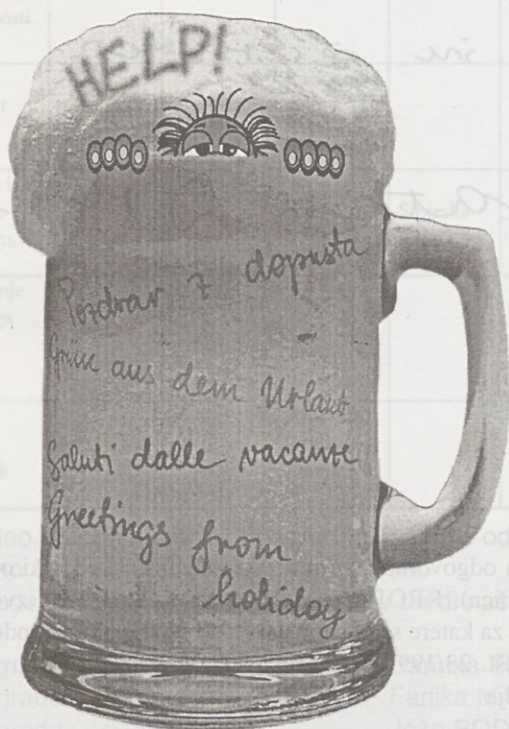 HELP!
Pozdrav z dopusta
Grüße aus dem Urlaub
Saluti dalle vacanze
Greetings from
holiday